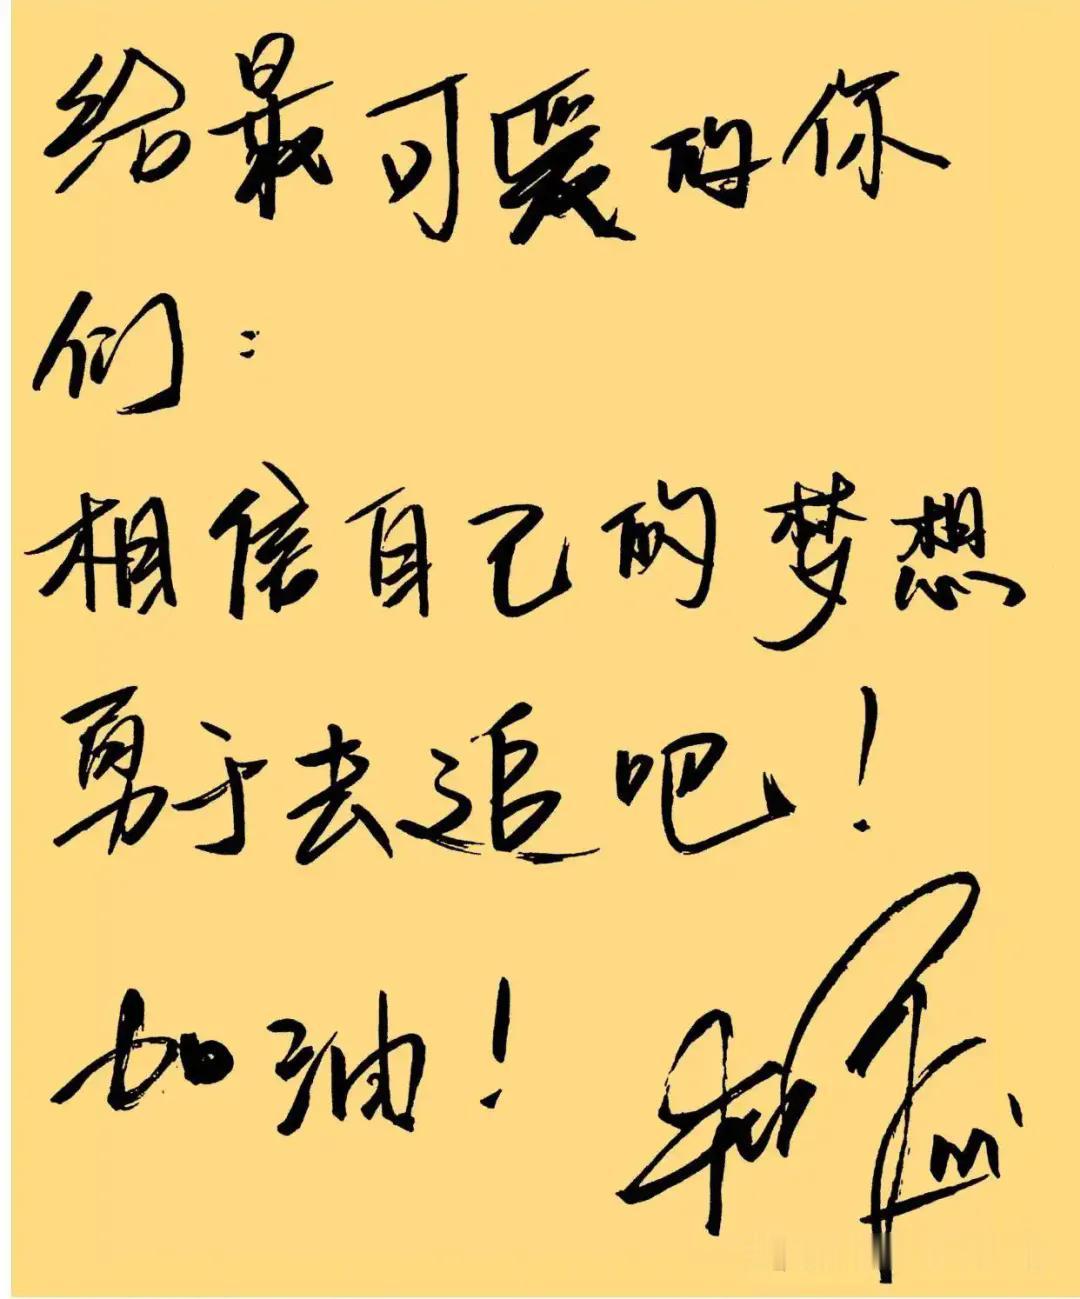 给最可爱的你
们：
相信自己的梦想
勇于去追吧！
加油！